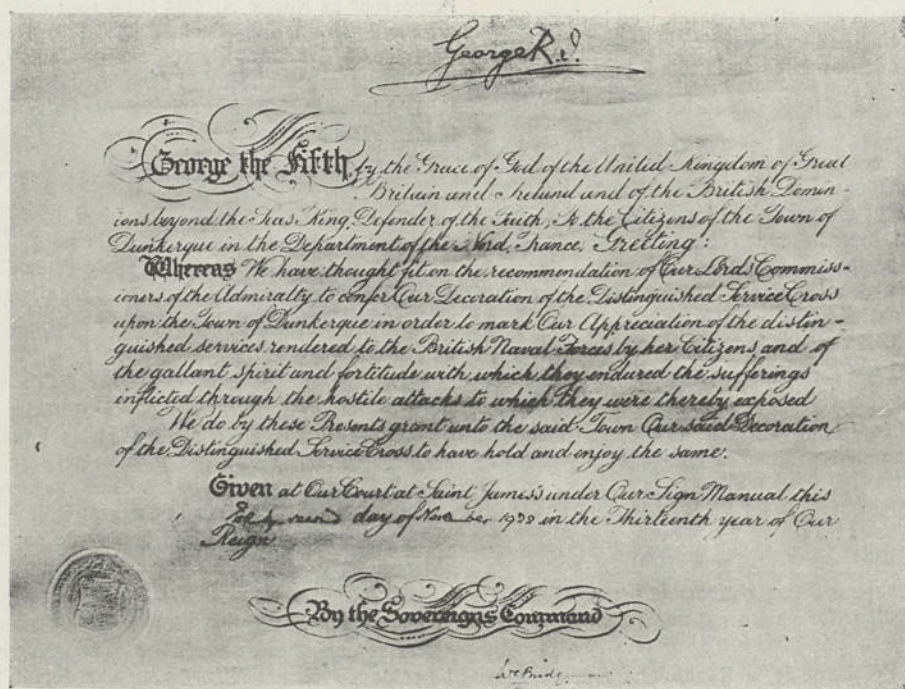 George R.I.
George the Fifth by the Grace of God of the United Kingdom of Great
Britain and Ireland and of the British Domin-
ions beyond the Seas King, Defender of the Faith, To the Citizens of the Town of
Dunkerque in the Department of the Nord, France, Greeting:
Whereas We have thought fit on the recommendation of Our Lords Commiss-
ioners of the Admiralty to confer Our Decoration of the Distinguished Service Cross
upon the Town of Dunkerque in order to mark Our Appreciation of the distin-
guished services rendered to the British Naval Forces by her Citizens and of
the gallant spirit and fortitude with which they endured the sufferings
inflicted through the hostile attacks to which they were thereby exposed
We do by these Presents grant unto the said Town Our said Decoration
of the Distinguished Service Cross to have hold and enjoy the same.
Given at Our Court at Saint James's under Our Sign Manual this
day of November 1922 in the Thirteenth year of Our
Reign
By the Sovereigns Command